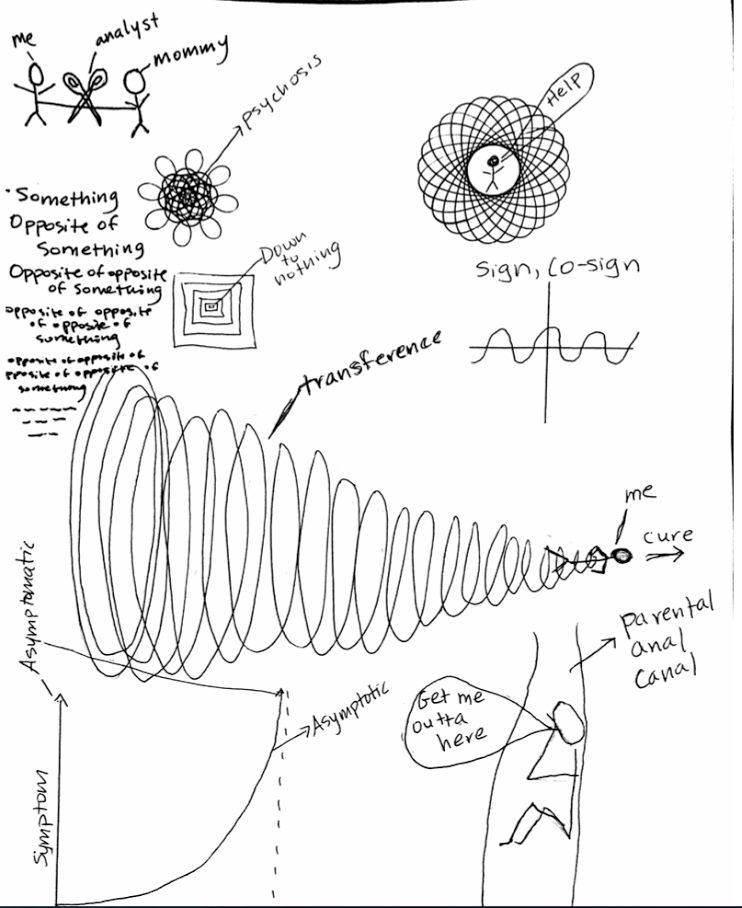 me
analyst
mommy
psychosis
Help
·Something
Opposite of
Something
Opposite of opposite
of Something
opposite of opposite
of opposite of
something
opposite of opposite of
opposite of opposite of
something
Down
to
nothing
Sign, Co-sign
transference
me
cure
parental
anal
canal
Get me
outta
here
Asymptomatic
Asymptotic
Symptom